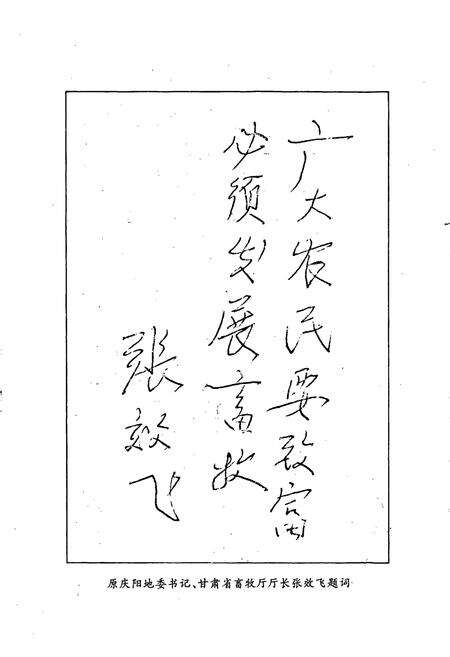 广大农民要致富
必须发展畜牧
張效飞
原庆阳地委书记、甘肃省畜牧厅厅长张效飞题词